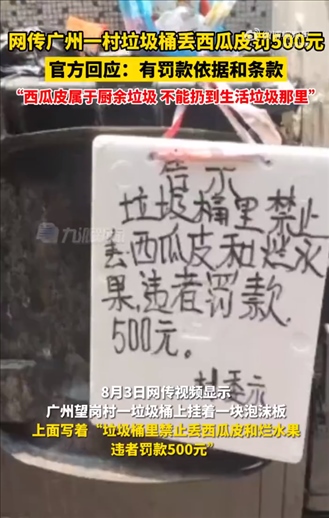 网传广州一村垃圾桶丢西瓜皮罚500元
官方回应：有罚款依据和条款
“西瓜皮属于厨余垃圾 不能扔到生活垃圾那里”
告示
垃圾桶里禁止
丢西瓜皮和烂水
果,违者罚款
500元。
九派新闻
8月3日网传视频显示
广州望岗村一垃圾桶上挂着一块泡沫板
上面写着“垃圾桶里禁止丢西瓜皮和烂水果
违者罚款500元”